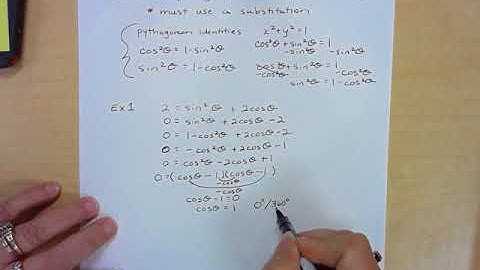 * must use a substitution
Pythagorean identities x²+y²=1
cos²θ=1-sin²θ cos²θ+sin²θ=1
-sin²θ -sin²θ
sin²θ=1-cos²θ cos²θ+sin²θ=1
-cos²θ -cos²θ
sin²θ=1-cos²θ
Ex1 2=sin²θ+2cosθ
0=sin²θ+2cosθ-2
0=1-cos²θ+2cosθ-2
0=-cos²θ+2cosθ-1
0=cos²θ-2cosθ+1
0=(cosθ-1)(cosθ-1)
-cosθ
-cosθ
cosθ-1=0
cosθ=1 0°/360°